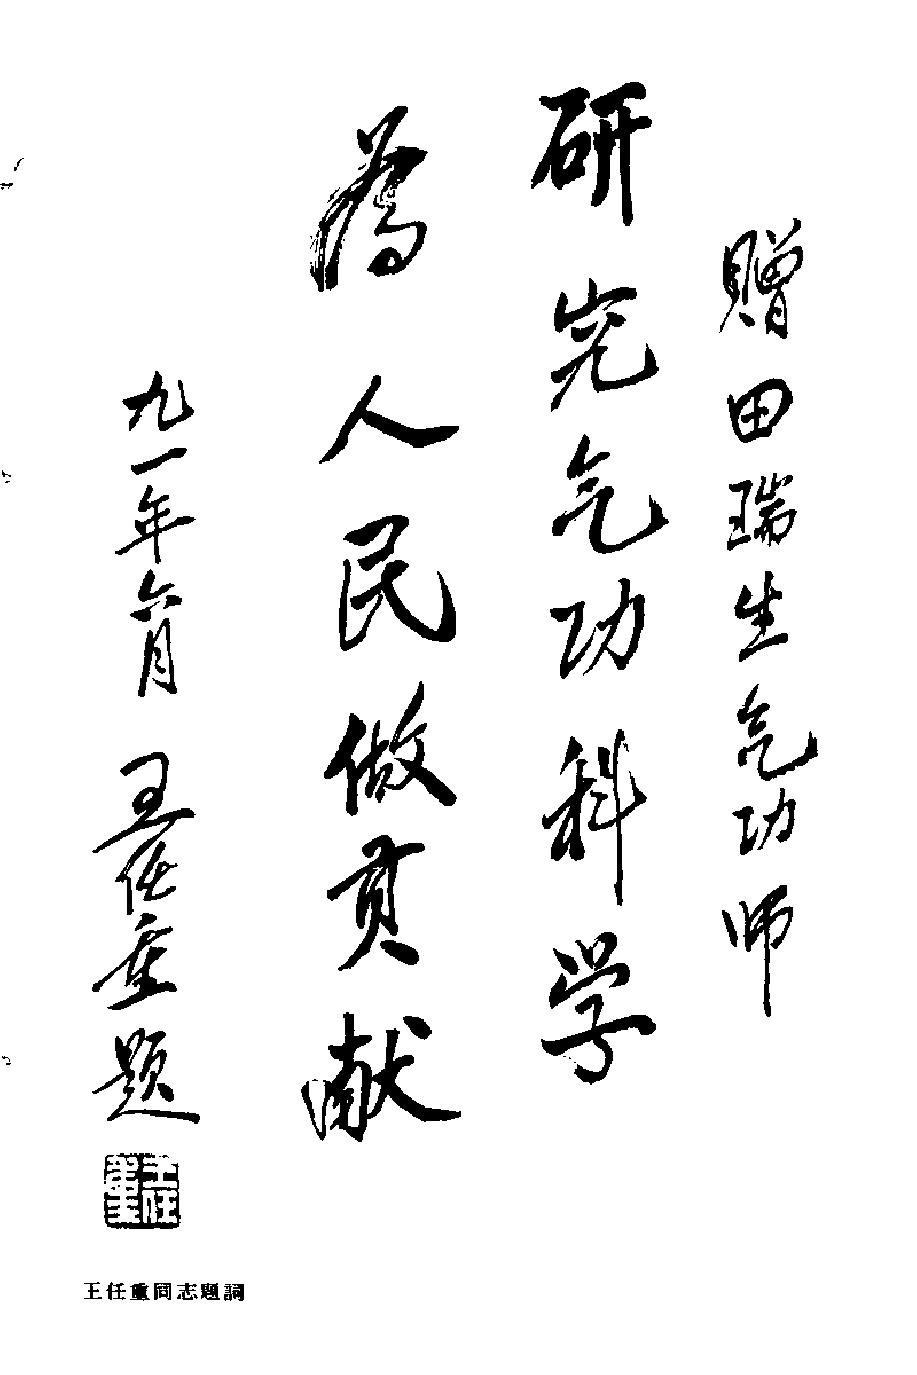 赠田瑞生气功师
研究气功科学
為人民做贡献
九一年六月 王任重题
王任重
王任重同志題詞